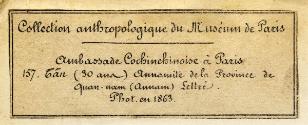 Collection anthropologique du Muséum de Paris
Ambassade Cochinchinoise à Paris
157. Tân (30 ans) Annamite de la Province de
Quan-nam (Annam) Lettré.
Phot. en 1863.